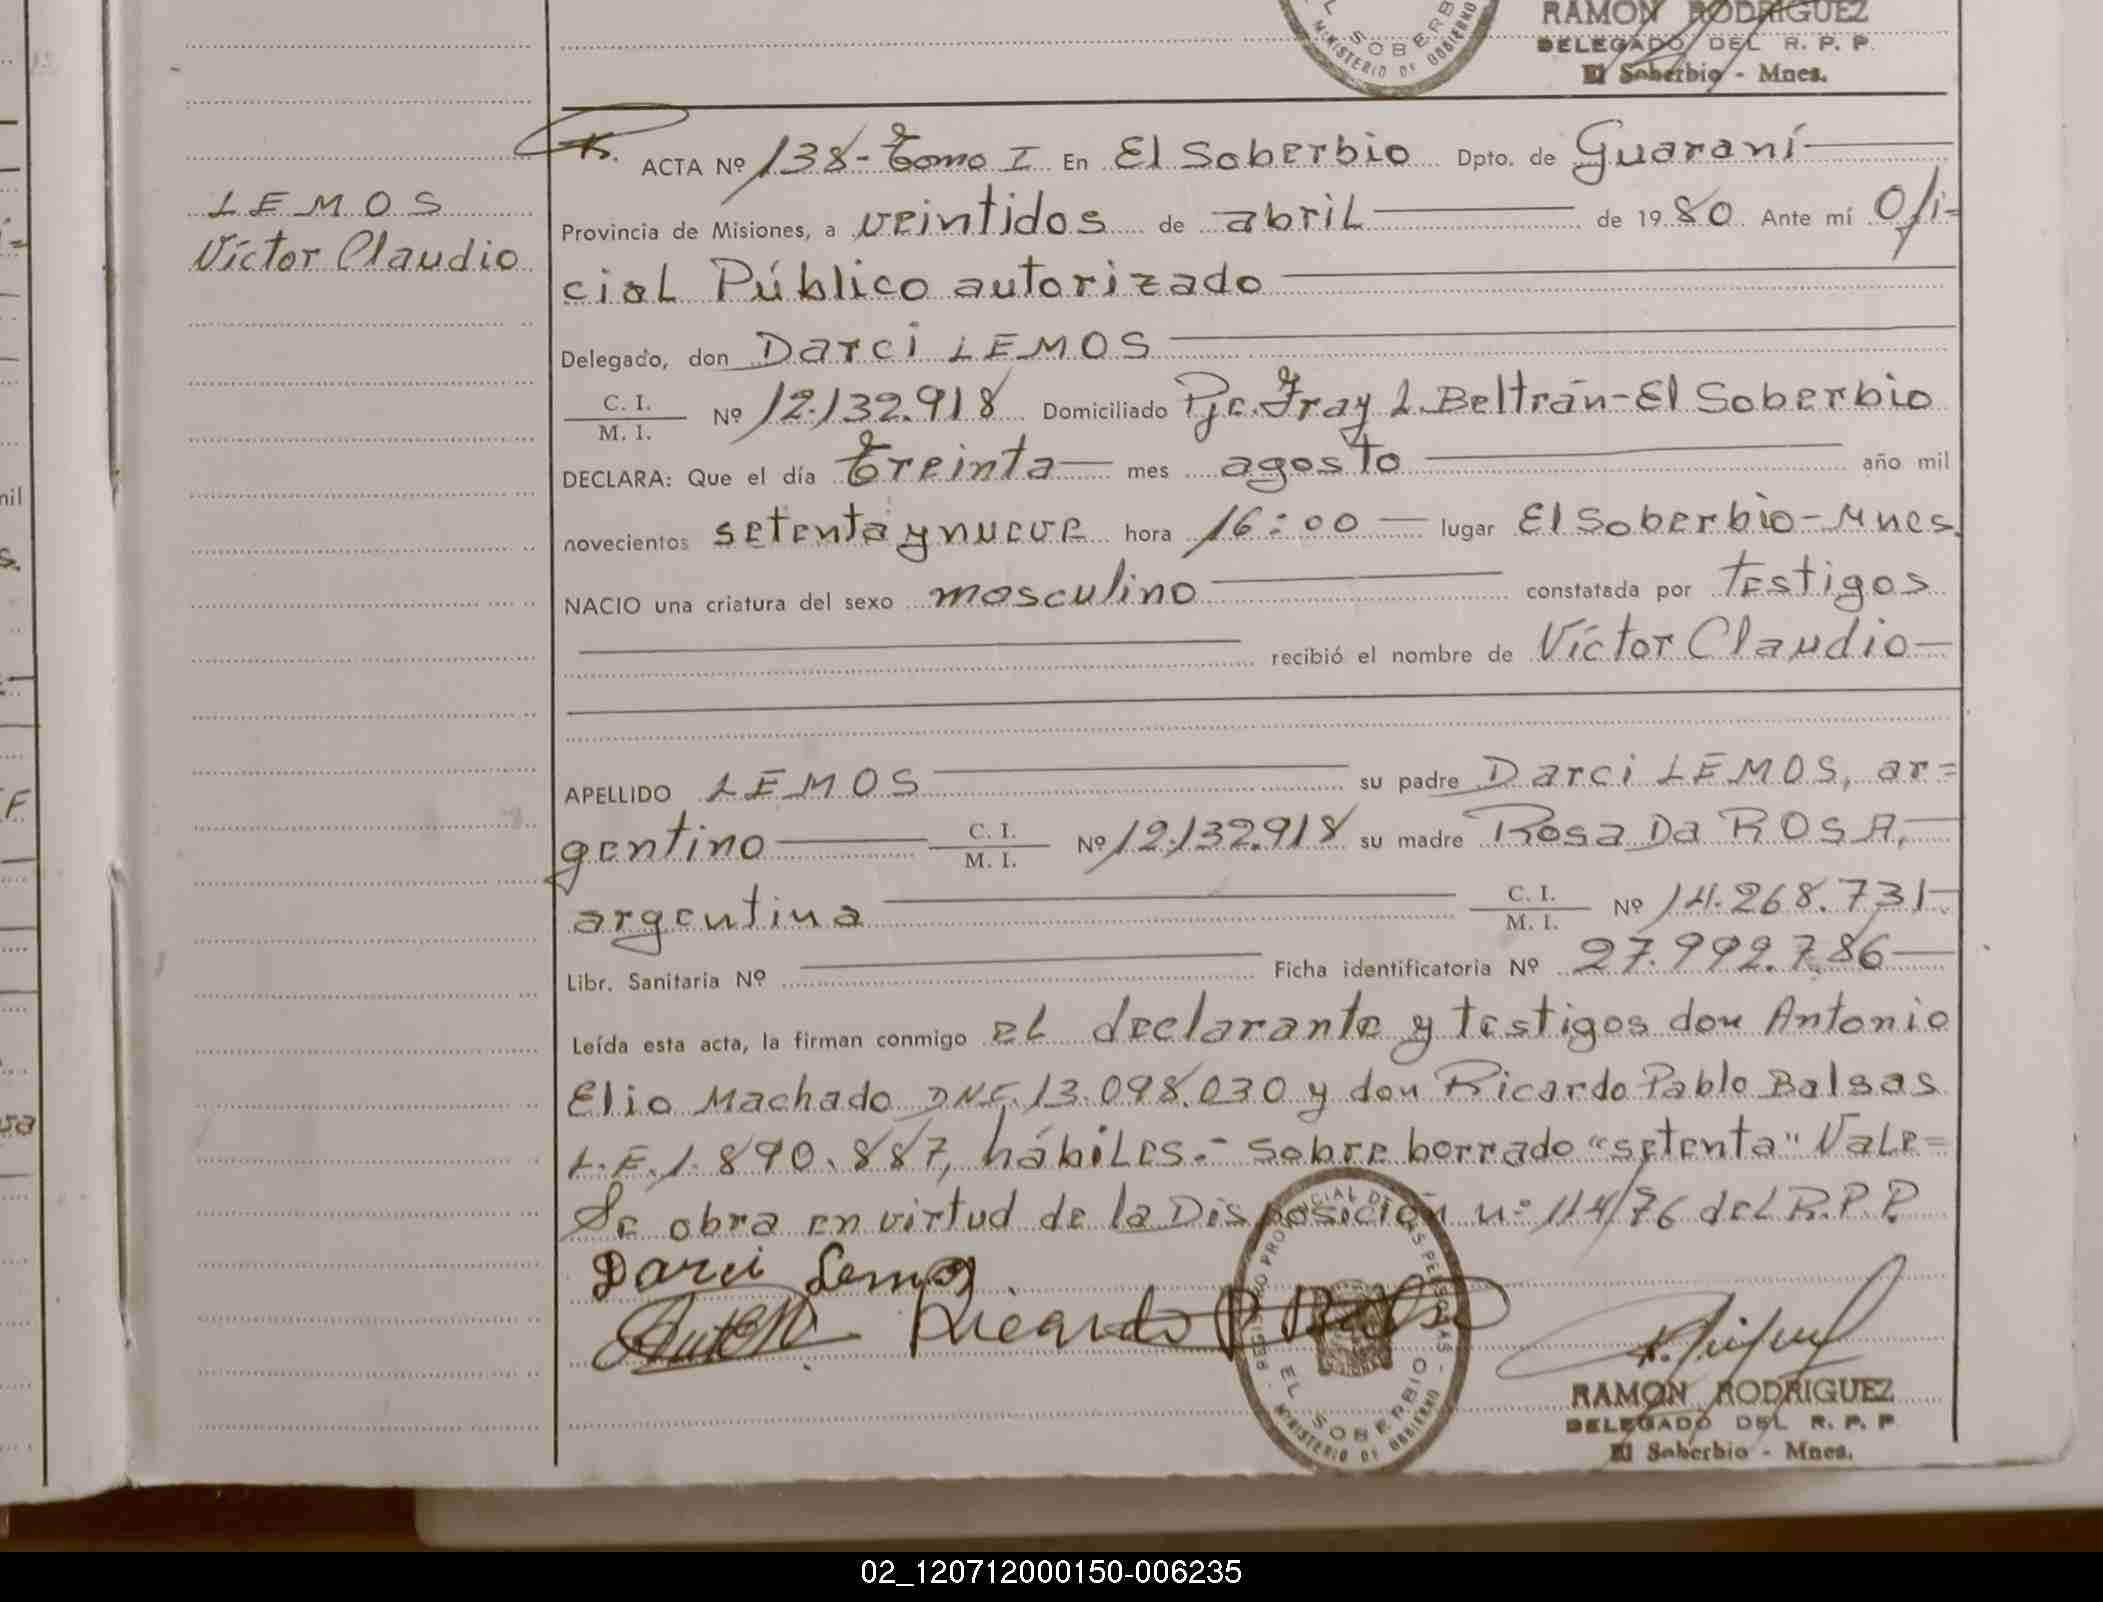 EL SOBERBIO
MINISTERIO DE GOBIERNO
RAMON RODRIGUEZ
DELEGADO DEL R. P. P.
El Soberbio - Mnes.
ACTA Nº 138- Tomo I En El Soberbio Dpto. de Guaraní
LEMOS
Víctor Claudio
Provincia de Misiones, a veintidos de abril de 1980 Ante mí Ofi-
cial Público autorizado
Delegado, don Darci LEMOS
C. I.
M. I. Nº 12.132.918 Domiciliado Pje. Fray L. Beltrán-El Soberbio
DECLARA: Que el día Treinta mes agosto año mil
novecientos setenta y nueve hora 16:00 lugar El Soberbio-Mnes.
NACIO una criatura del sexo masculino constatada por testigos
recibió el nombre de Víctor Claudio
APELLIDO LEMOS su padre Darci LEMOS, ar=
gentino C. I.
M. I. Nº 12.132.918 su madre Rosa Da ROSA,
argentina C. I.
M. I. Nº 14.268.731
Libr. Sanitaria Nº Ficha identificatoria Nº 27.992.786
Leída esta acta, la firman conmigo el declarante y testigos don Antonio
Elio Machado DNI. 13.098.030 y don Ricardo Pablo Balsas
L.E.1.890.887, hábiles.- Sobre borrado "setenta" Vale=
Se obra en virtud de la Disposición nº 114/76 del R.P.P.
Darci Lemos
Ricardo P
REGISTRO PROVINCIAL DE LAS PERSONAS
EL SOBERBIO
MINISTERIO DE GOBIERNO
RAMON RODRIGUEZ
DELEGADO DEL R. P. P
El Soberbio - Mnes.
02_120712000150-006235